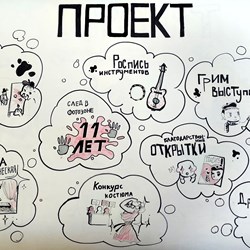 ПРОЕКТ
Роспись
инструментов
Грим
выступл
СЛЕД В
ФОТОЗОНЕ
11
ЛЕТ
БЛАГОДАРСТВЕН
ОТКРЫТКИ
Конкурс
костюма